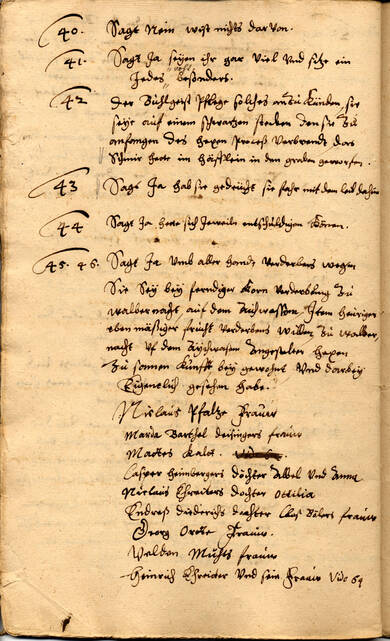 40. Sagt Nein weist nichts darvon.
41. Sagt Ja seyen ihr gar viel Und sitze ein
Jedes besonders.
42 Der Buhlgeist Pflege solches an Zu Künden, sie
seye auf einem schwartzen stecken den sie Zu
anfangen des hexen Proceß Verbrendt das
Schmir hette im häffelein in den graben geworfen.
43 Sagt Ja hab sie gedeücht sie fahr mit dem leib dahin
44 Sagt Ja. hette sich Jeweiln entschuldigen Können.
45. 46. Sagt Ja Umb aller handt Verderbens wegen
Sie Sey bey ferndiger Korn Verderbung Zu
walbernacht auf dem Item heüriger
eben mäßiger frucht Verderbens willen Zu walber
nacht Uf dem Angestelter hexen
Zu samen Kunfft bey gewohnt Und darbey
Eigentlich gesehen habe.
Niclaus Pfaltze Frauw
Maria Barthel frauw
Mattes Kalt.
Casper heimbergers döchter Und Anna
Niclaus Schreiters dochter Ottilia
Endreß diederichs dochter frauw
Georg Frauw
frauw
Heinrich Und sein Frauw Vide 64